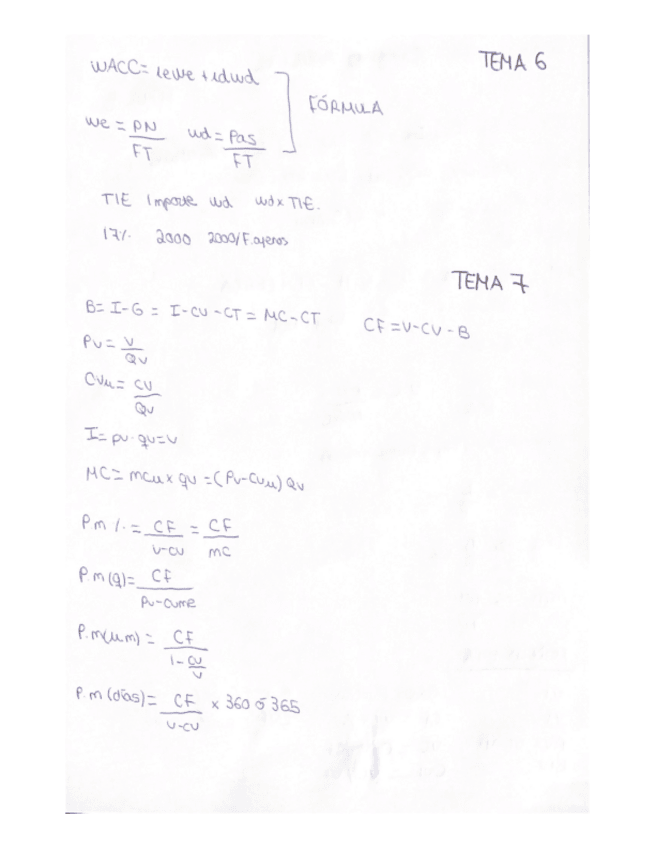 TEMA 6
WACC= rewe + rdwd
FÓRMULA
we = PN/FT wd = Pas/FT
TIE Importe wd wdxTIE.
17% 2000 2000/F.ajenos
TEMA 7
B= I-G = I-CV-CT = MC-CT CF = V-CV-B
Pv = V/Qv
Cvu= CV/Qv
I= pv · qv=v
MC= mcu x qv = (Pv-Cvu) Qv
P.m %. = CF/V-CV = CF/MC
P.m (q)= CF/Pv-cume
P.m(u.m) = CF/1-CV/V
P.m (días)= CF/V-CV x 360 ó 365